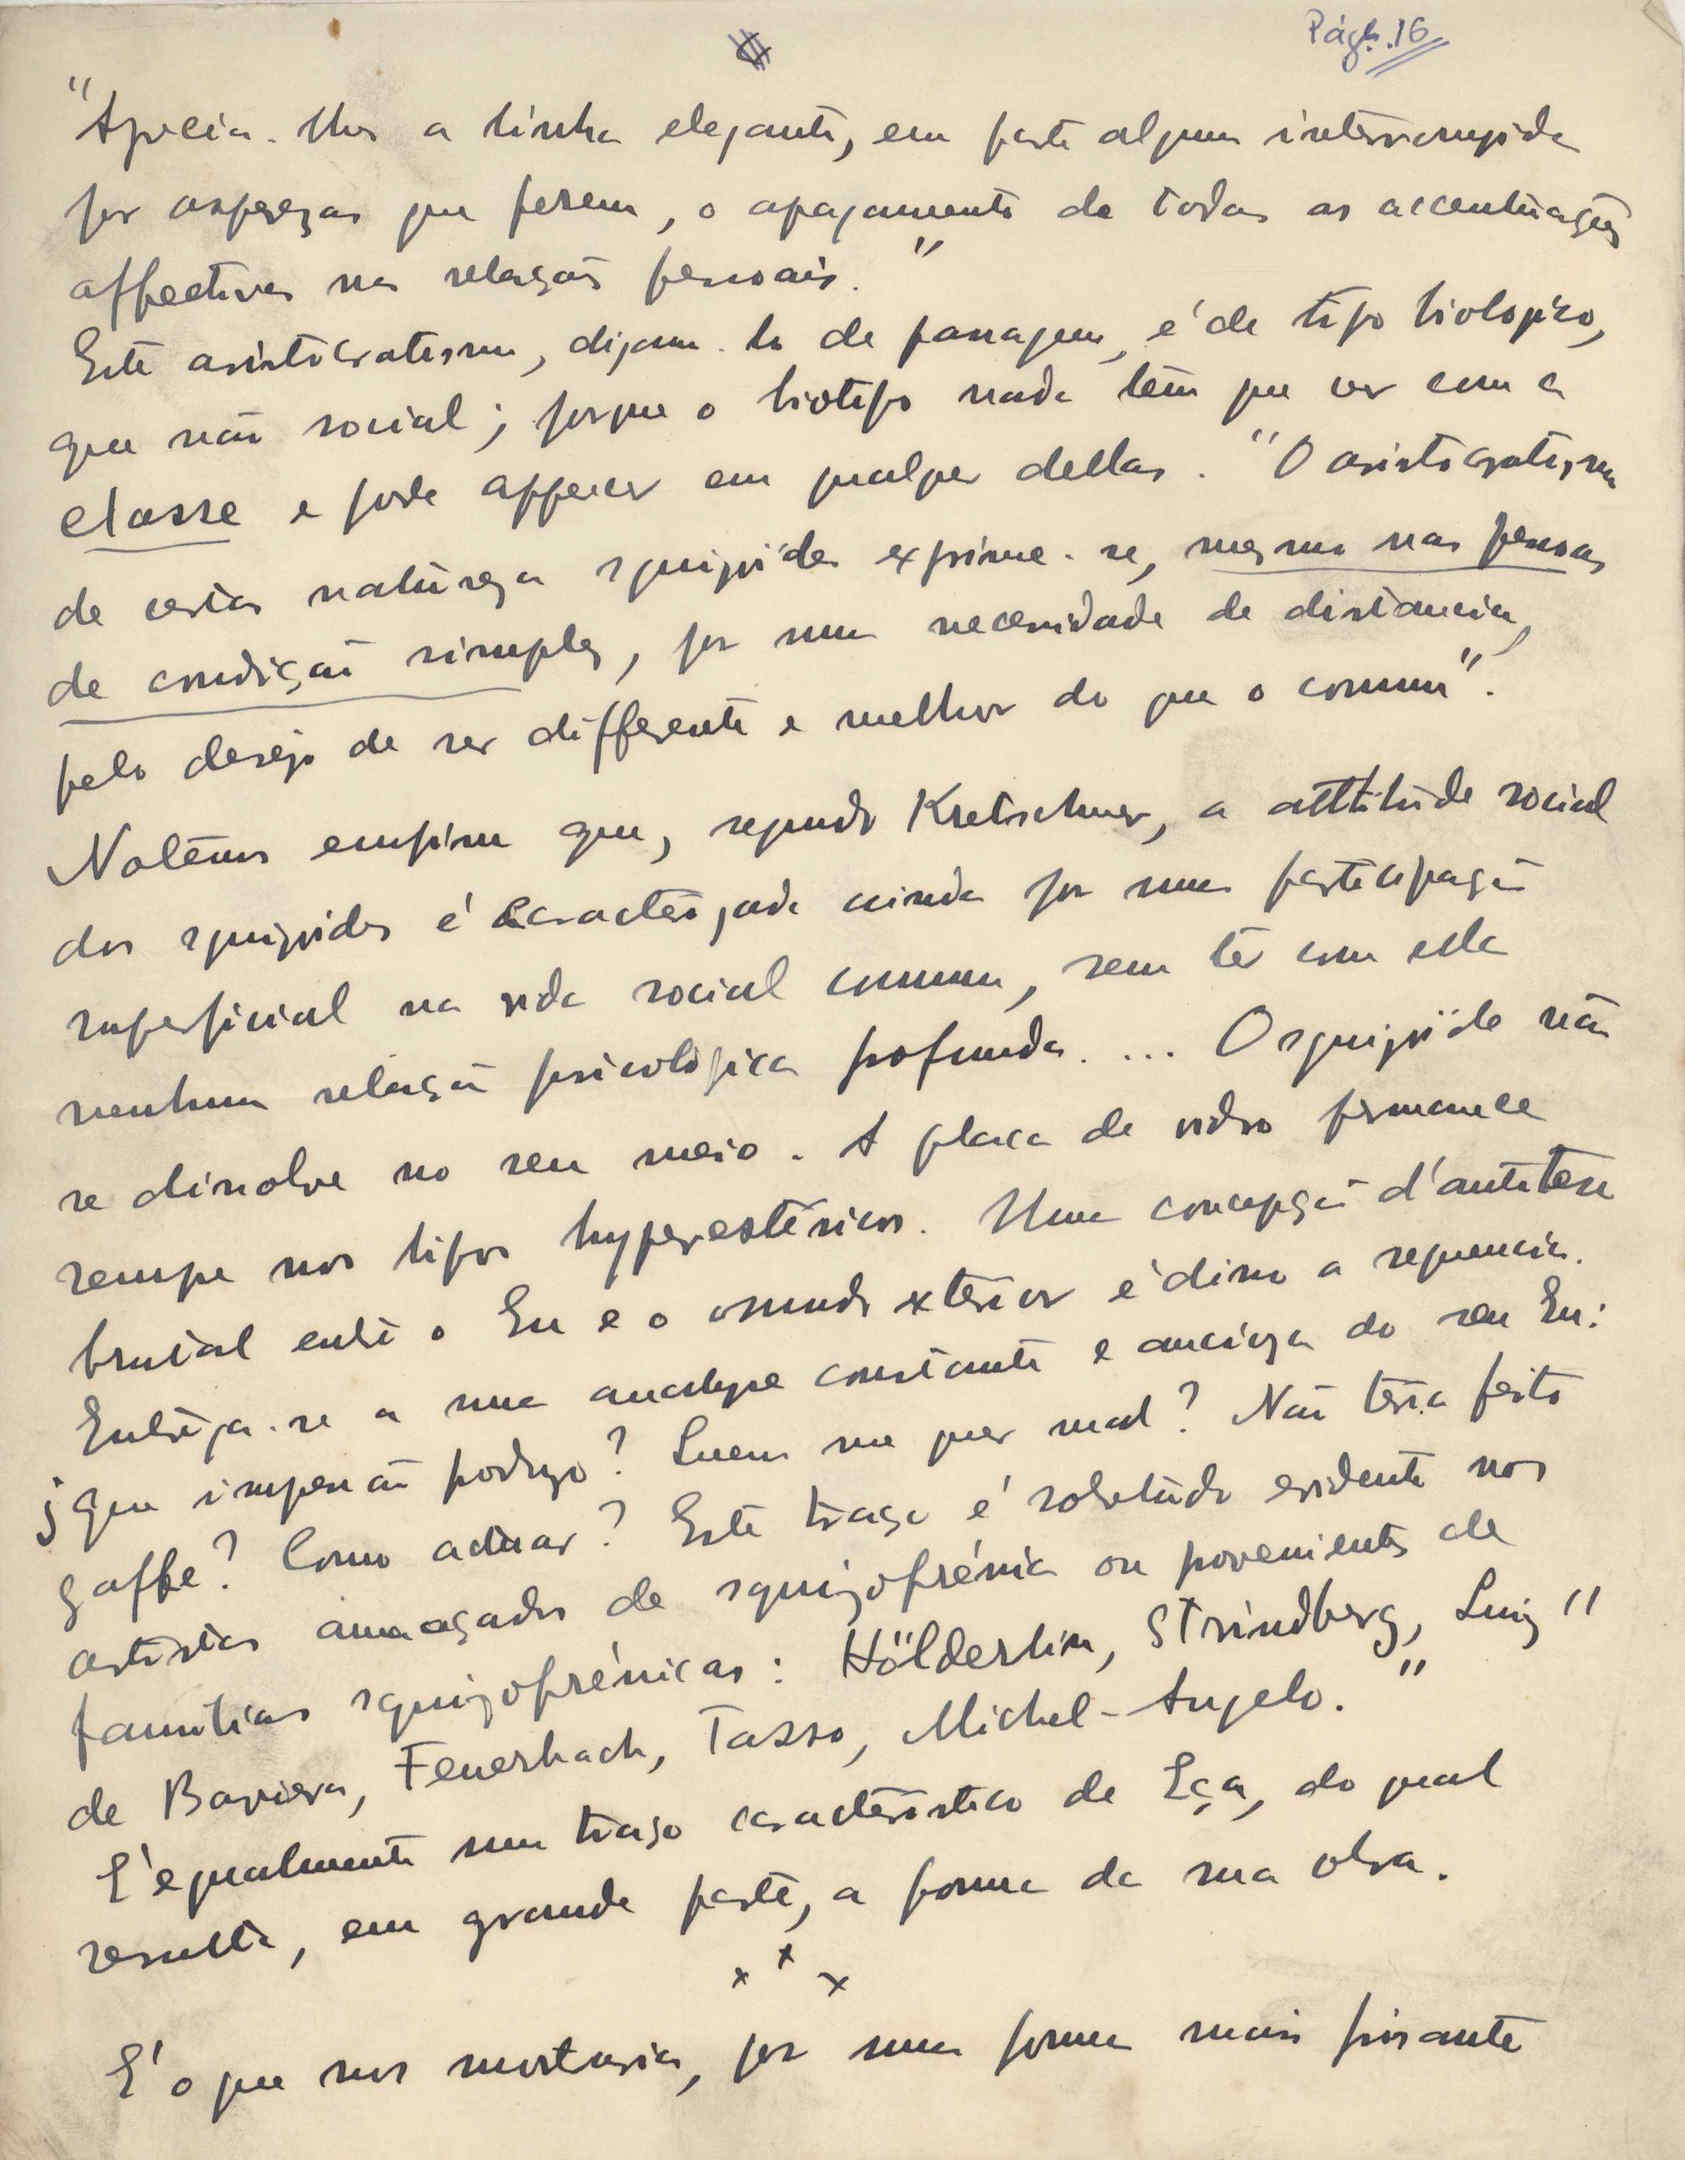 Págs. 16
"Aprecia-lhes a linha elegante, em parte alguma interrompida
por asperezas que ferem, o apagamento de todas as accentuações
affectivas nas relações pessoais."
Este aristocratismo, digam-lo de passagem, é de tipo biologico,
que não social; porque o biotipo nada tem que ver com a
classe e pode apparecer em qualquer dellas. "O aristocratismo
de certas naturezas squizoides exprime-se, mesmo nas pessoas
de condição simples, por uma necessidade de distancia,
pelo desejo de ser differente e melhor do que o commum".
Notemos emfim que, segundo Kretschmer, a attitude social
dos squizoides é caracterizada ainda por uma participação
superficial na vida social commum, sem ter com ella
nenhuma relação psicológica profunda. ... O squizoide não
se dissolve no seu meio. A placa de vidro permanece
sempre nos tipos hyperestésicos. Uma concepção d'antitese
brutal entre o Eu e o mundo exterior é disso a sequencia.
Entrega-se a uma analyse constante e anciosa do seu Eu:
que impressão produzo? Quem me quer mal? Não terei feito
gaffe? Como actuar? Este traço é sobretudo evidente nos
artistas ameaçados de squizofrénia ou provenientes de
familias squizofrénicas: Hölderlin, Strindberg, Luiz II
de Baviera, Feuerbach, Tasso, Michel-Angelo."
E' egualmente um traço caracteristico de Eça, do qual
resulta, em grande parte, a forma da sua obra.
x x x
E' o que nos mostraria, por uma forma mais frisante